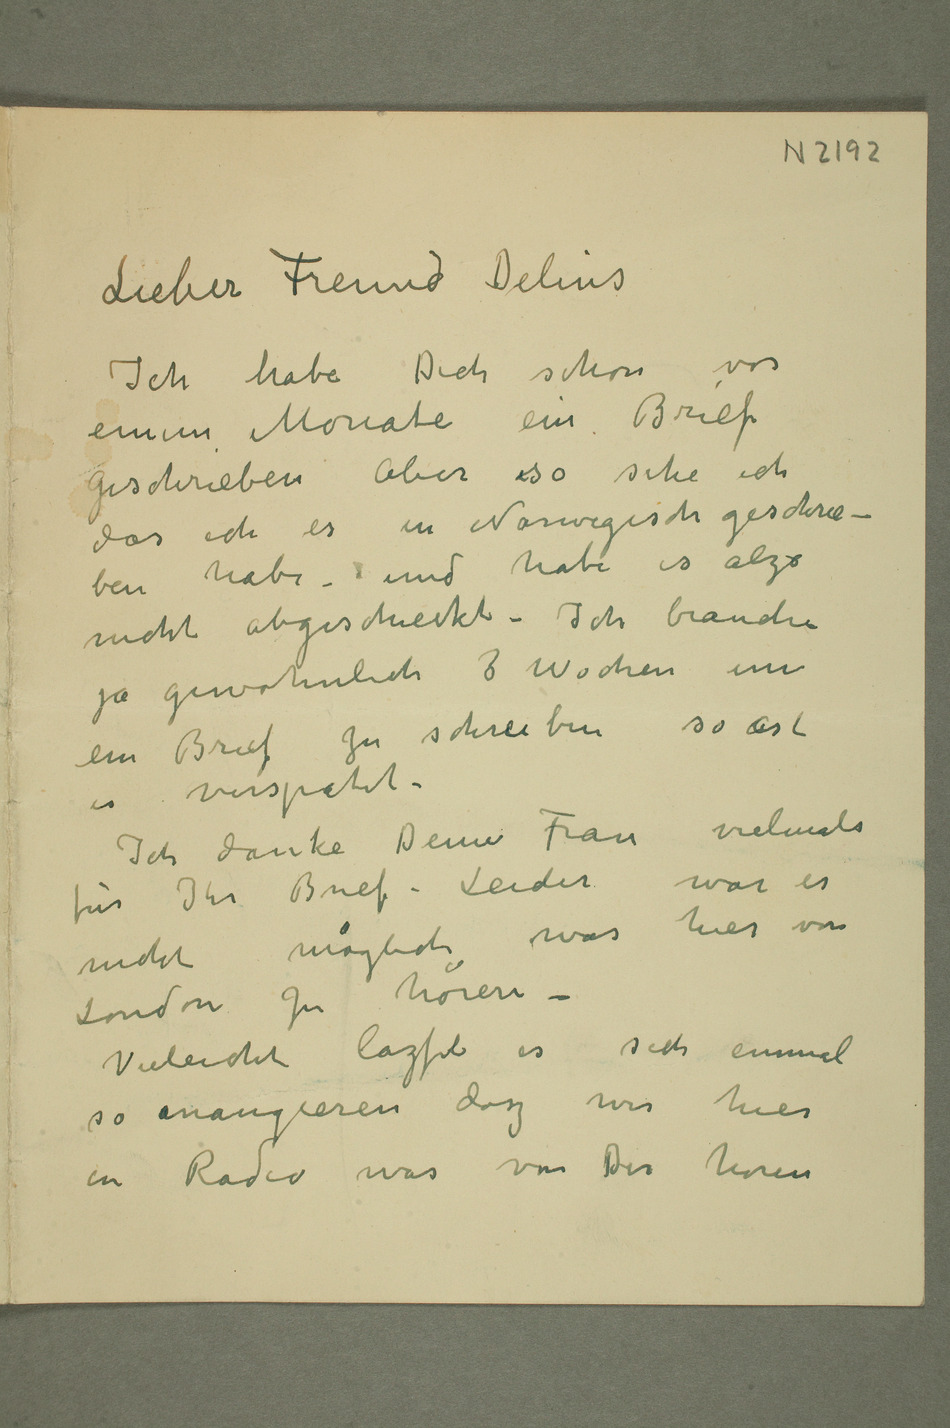 N 2192
Lieber Freund Delius
Ich habe Dich schon vor
einem Monate ein Brief
geschrieben aber so sehe ich
das ich es in Norwegisch geschrie–
ben habe – und habe es alzo
nicht abgeschieckt – Ich brauche
ja gewöhnlich 3 Wochen um
ein Brief zu schreiben so ist
es verspätet –
Ich danke Deine Frau vielmals
für Ihr Brief – Leider war es
nicht möglich was hier von
London zu hören –
Vieleicht lazst es sich einmal
so arrangieren dasz wir hier
in Radio was von Dir hören